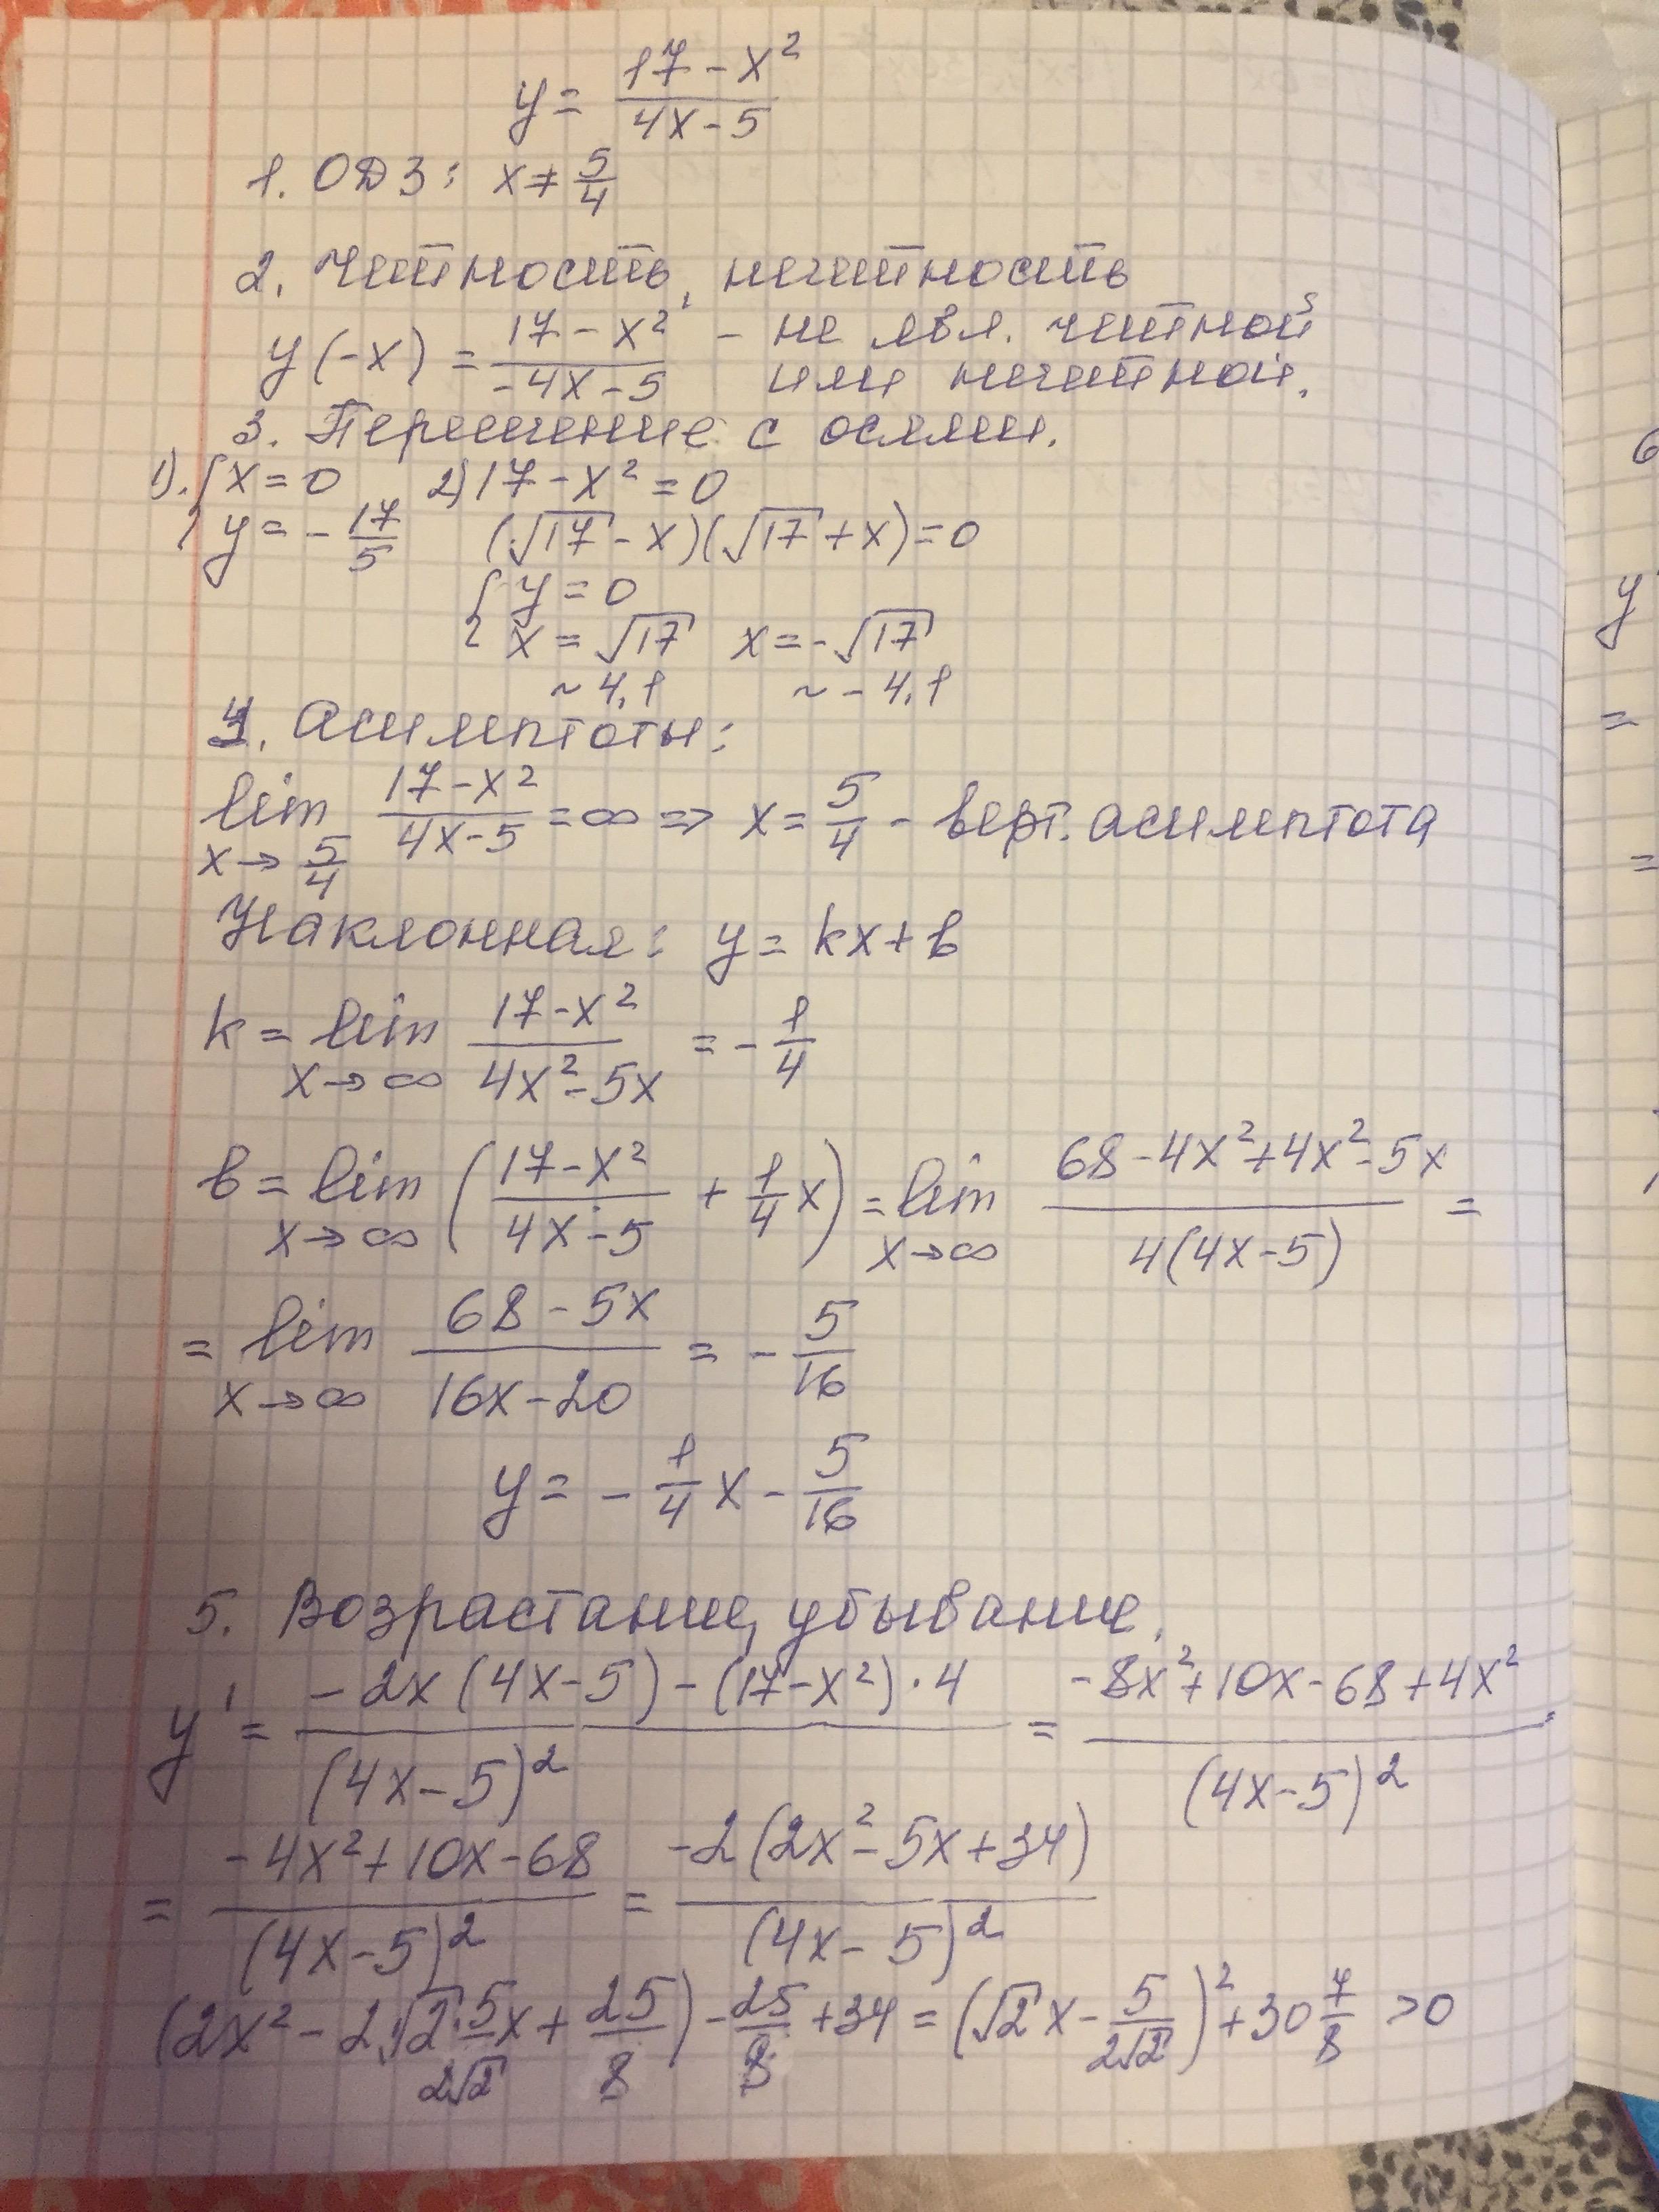 y = (17 - x²)/(4x - 5)
1. ОДЗ: x ≠ 5/4
2. Четность, нечетность
y(-x) = (17 - x²)/(-4x - 5) - не явл. четной
или нечетной.
3. Пересечение с осями.
1). { x = 0   2) 17 - x² = 0
y = -17/5   (√17 - x)(√17 + x) = 0
{ y = 0
x = √17   x = -√17
~ 4,1   ~ - 4,1
4. Асимптоты:
lim x→5/4 (17 - x²)/(4x - 5) = ∞ => x = 5/4 - верт. асимптота
Наклонная: y = kx + b
k = lim x→∞ (17 - x²)/(4x² - 5x) = -1/4
b = lim x→∞ ((17 - x²)/(4x - 5) + 1/4 x) = lim x→∞ (68 - 4x² + 4x² - 5x)/(4(4x - 5)) =
= lim x→∞ (68 - 5x)/(16x - 20) = -5/16
y = -1/4 x - 5/16
5. Возрастание, убывание.
y' = (-2x(4x - 5) - (17 - x²)·4)/(4x - 5)² = (-8x² + 10x - 68 + 4x²)/(4x - 5)²
= (-4x² + 10x - 68)/(4x - 5)² = (-2(2x² - 5x + 34))/(4x - 5)²
(2x² - 2·√2·5/(2√2) x + 25/8) - 25/8 + 34 = (√2 x - 5/(2√2))² + 30 7/8 > 0
6
y
=
=